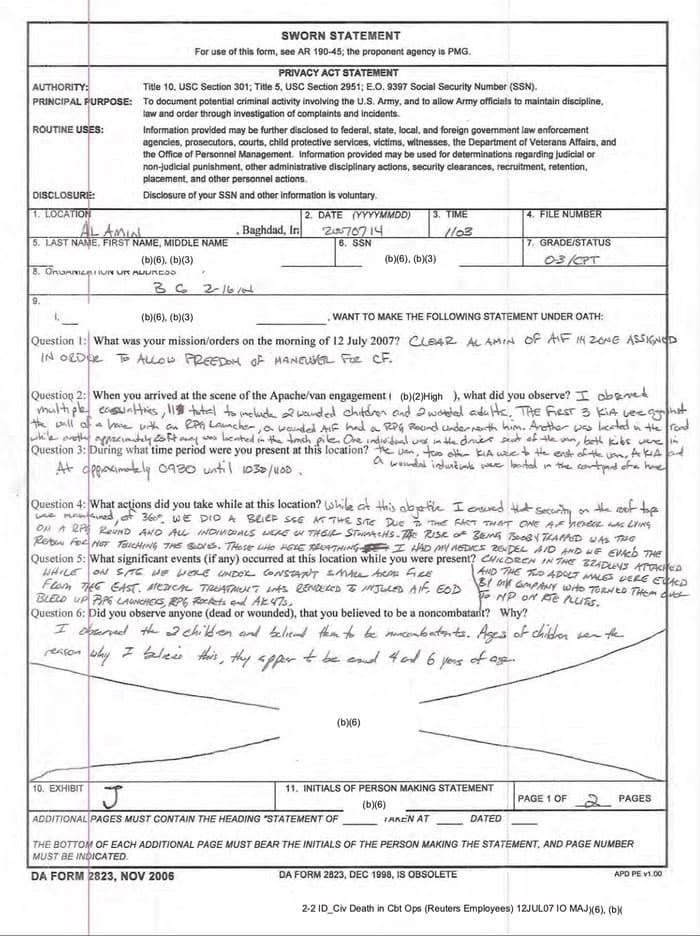 SWORN STATEMENT
For use of this form, see AR 190-45; the proponent agency is PMG.
PRIVACY ACT STATEMENT
AUTHORITY: Title 10, USC Section 301; Title 5, USC Section 2951; E.O. 9397 Social Security Number (SSN).
PRINCIPAL PURPOSE: To document potential criminal activity involving the U.S. Army, and to allow Army officials to maintain discipline,
law and order through investigation of complaints and incidents.
ROUTINE USES: Information provided may be further disclosed to federal, state, local, and foreign government law enforcement
agencies, prosecutors, courts, child protective services, victims, witnesses, the Department of Veterans Affairs, and
the Office of Personnel Management. Information provided may be used for determinations regarding judicial or
non-judicial punishment, other administrative disciplinary actions, security clearances, recruitment, retention,
placement, and other personnel actions.
DISCLOSURE: Disclosure of your SSN and other information is voluntary.
1. LOCATION 2. DATE (YYYYMMDD) 3. TIME 4. FILE NUMBER
AL AMIN , Baghdad, Ir 20070714 1103
5. LAST NAME, FIRST NAME, MIDDLE NAME 6. SSN 7. GRADE/STATUS
(b)(6), (b)(3) (b)(6), (b)(3) O-3/CPT
8. ORGANIZATION OR ADDRESS
B Co 2-16 IN
9.
I, (b)(6), (b)(3) , WANT TO MAKE THE FOLLOWING STATEMENT UNDER OATH:
Question 1: What was your mission/orders on the morning of 12 July 2007? CLEAR AL AMIN OF AIF IN ZONE ASSIGNED
IN ORDER TO ALLOW FREEDOM OF MANEUVER FOR CF.
Question 2: When you arrived at the scene of the Apache/van engagement ( (b)(2)High ), what did you observe? I observed
multiple casualties, 11 total to include 2 wounded children and 2 wounded adults. THE FIRST 3 KIA were against
the wall of a house with an RPG Launcher, a wounded AIF had a RPG Round underneath him. Another was located in the road
while another approximately 20 ft away was located in the trash pile. One individual was in the driver seat of the van, both kids were in
Question 3: During what time period were you present at this location? the van, two other KIA were to the east of the van. A KIA and
At approximately 0930 until 1030/1100. a wounded individuals were located in the courtyard of a house
Question 4: What actions did you take while at this location? While at this objective I ensured that security on the roof tops
was maintained, at 360°. WE DID A BRIEF SSE AT THE SITE DUE TO THE FACT THAT ONE AIF MEMBER WAS LYING
ON A RPG ROUND AND ALL INDIVIDUALS WERE ON THEIR STOMACHS. THE RISK OF BEING BOOBY TRAPPED WAS THE
REASON FOR NOT TOUCHING THE BODIES. THOSE WHO WERE BREATHING I HAD MY MEDICS RENDER AID AND WE EVACD THE
Qusetion 5: What significant events (if any) occurred at this location while you were present? CHILDREN IN THE BRADLEYS ATTACHED
WHILE ON SITE WE WERE UNDER CONSTANT SMALL ARMS FIRE AND THE TWO ADULT MALES WERE EVACD
FROM THE EAST. MEDICAL TREATMENT WAS RENDERED TO INJURED AIF. EOD BY MY COMPANY WHO TURNED THEM OVER
BLEW UP RPG LAUNCHERS, RPG Rockets and AK 47s. TO NP ON RTE PLUTO.
Question 6: Did you observe anyone (dead or wounded), that you believed to be a noncombatant? Why?
I observed the 2 children and believed them to be noncombatants. Ages of children were the
reason why I believe this, they appear to be around 4 and 6 years of age.
(b)(6)
10. EXHIBIT J 11. INITIALS OF PERSON MAKING STATEMENT
(b)(6) PAGE 1 OF 2 PAGES
ADDITIONAL PAGES MUST CONTAIN THE HEADING "STATEMENT OF TAKEN AT DATED
THE BOTTOM OF EACH ADDITIONAL PAGE MUST BEAR THE INITIALS OF THE PERSON MAKING THE STATEMENT, AND PAGE NUMBER
MUST BE INDICATED.
DA FORM 2823, NOV 2006 DA FORM 2823, DEC 1998, IS OBSOLETE APD PE v1.00
2-2 ID_Civ Death in Cbt Ops (Reuters Employees) 12JUL07 IO MAJ)(6), (b)(